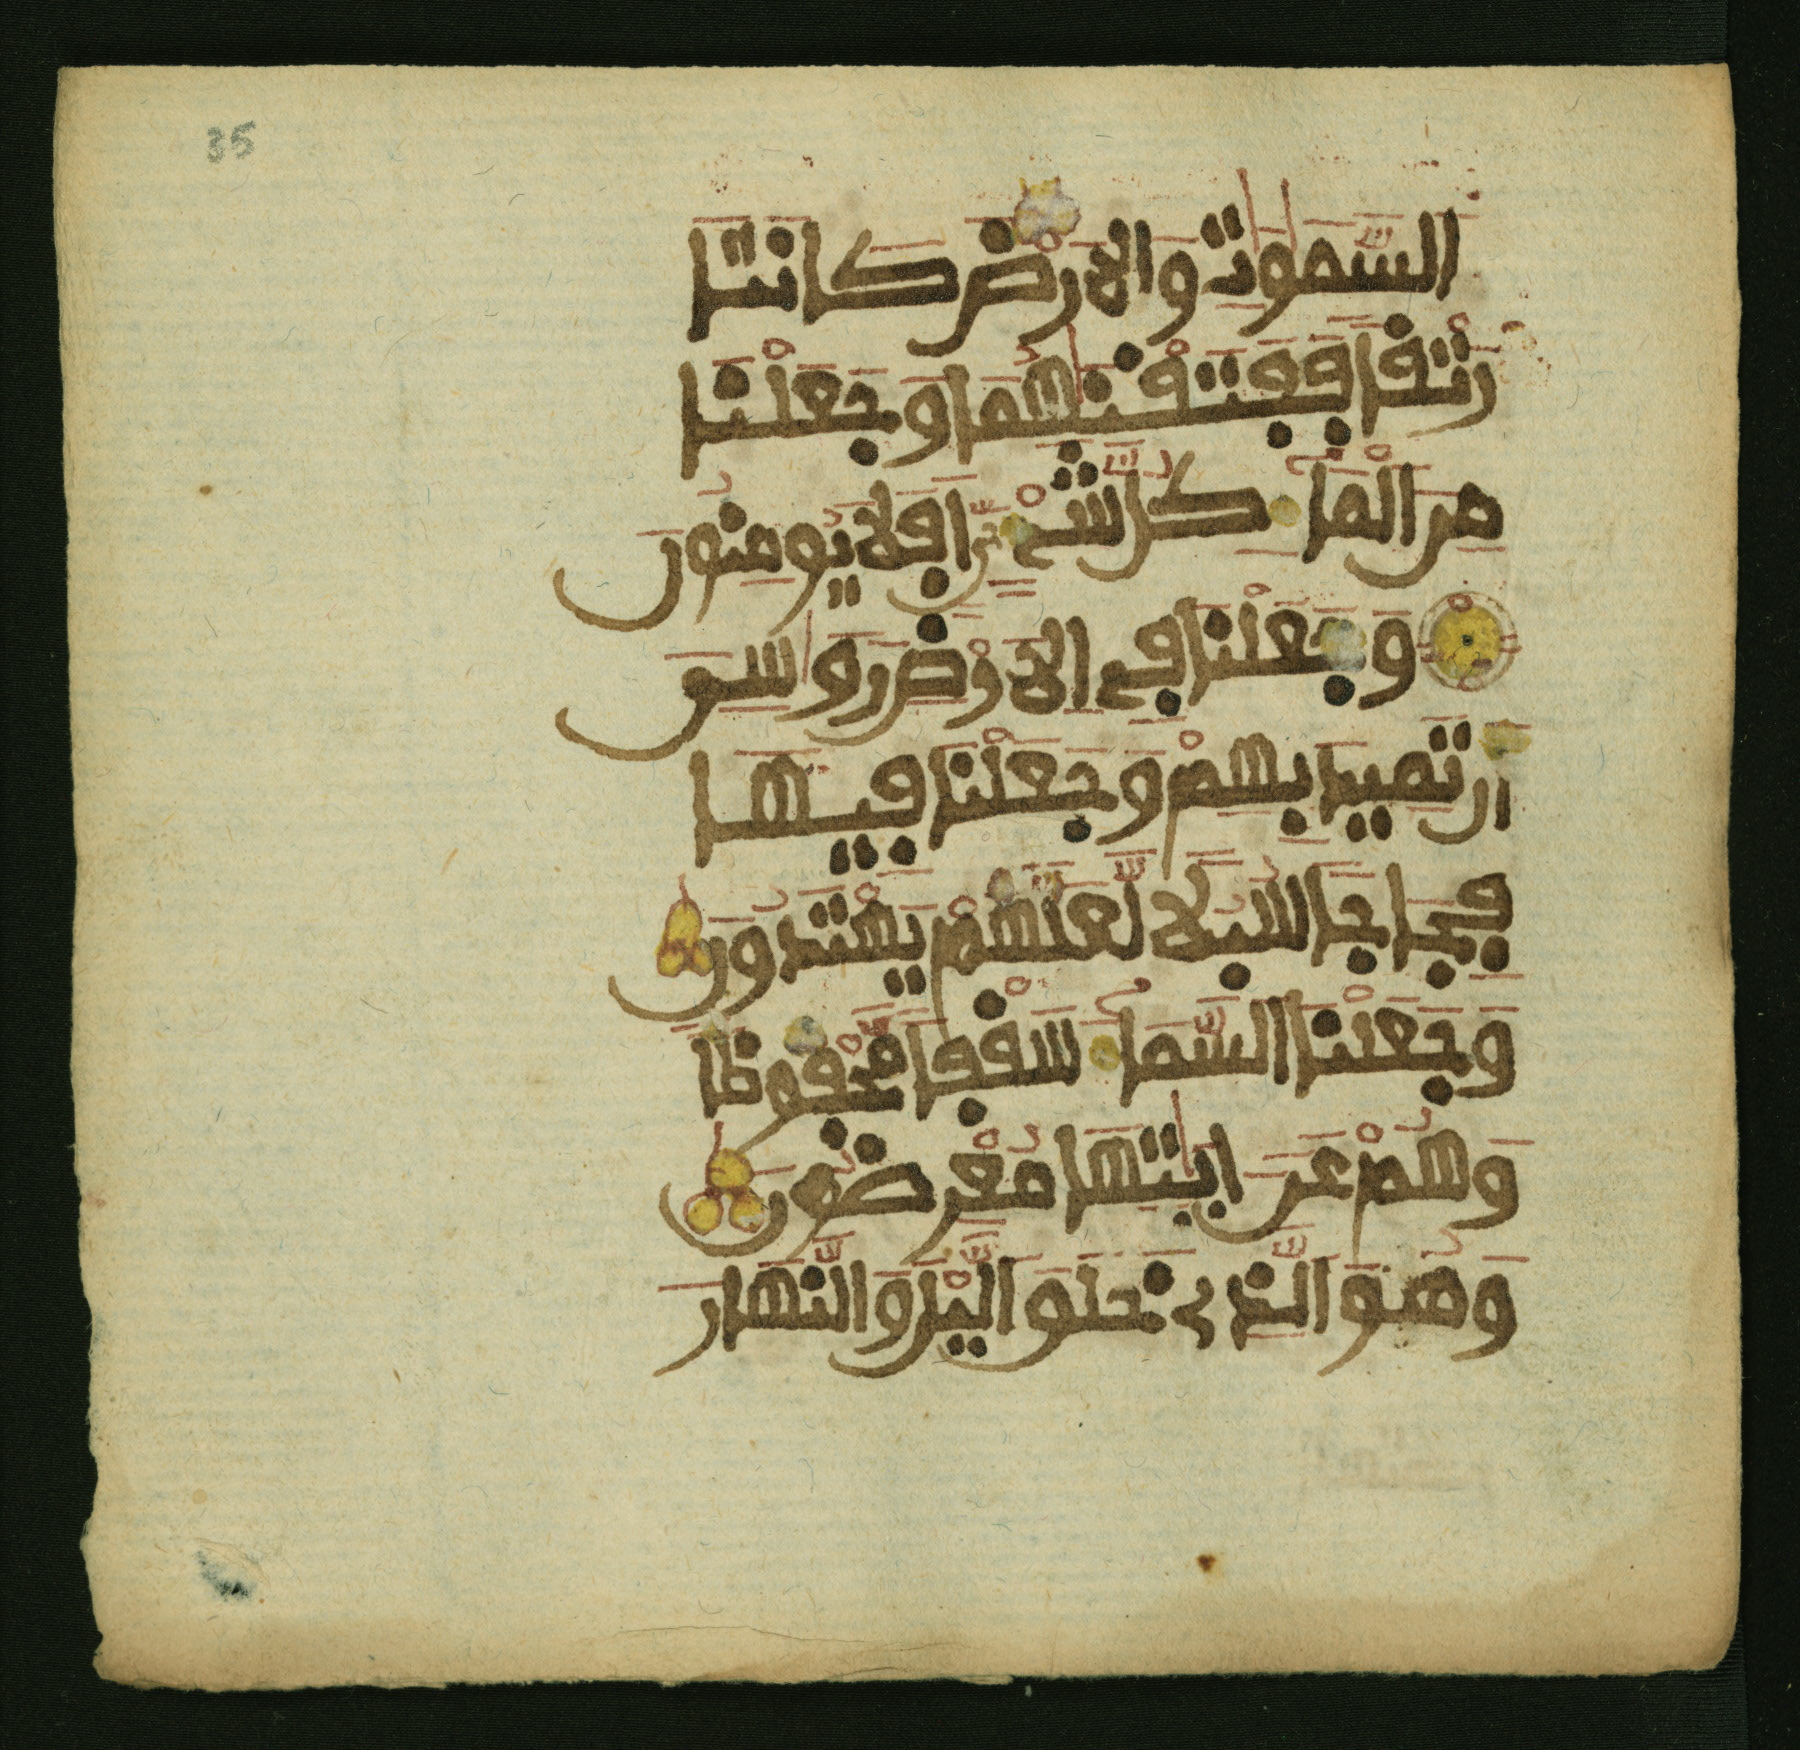 35
السَّمَٰوَٰتِ وَالَارْضَ كَانَتَا
رَتْقا فَفَتَقْنَٰهُمَا وَجَعَلْنَا
مِنَ الْمَآءِ كُلَّ شَيْءٍ حَيٍّ اَفَلَا يُومِنُونَ
وَجَعَلْنَا فِي الَارْضِ رَوَٰسِيَ
أَن تَمِيدَ بِهِمْ وَجَعَلْنَا فِيهَا
فِجَاجاً سُبُلاً لَّعَلَّهُمْ يَهْتَدُونَ
وَجَعَلْنَا السَّمَآءَ سَقْفاً مَّحْفُوظاً
وَهُمْ عَنَ ايَٰتِهَا مُعْرِضُونَ
وَهُوَ الَّذِي خَلَقَ الَّيْلَ وَالنَّهَارَ